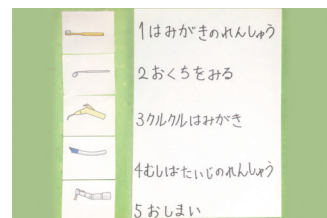 1はみがきのれんしゅう
2おくちをみる
3クルクルはみがき
4むしばたいじのれんしゅう
5おしまい